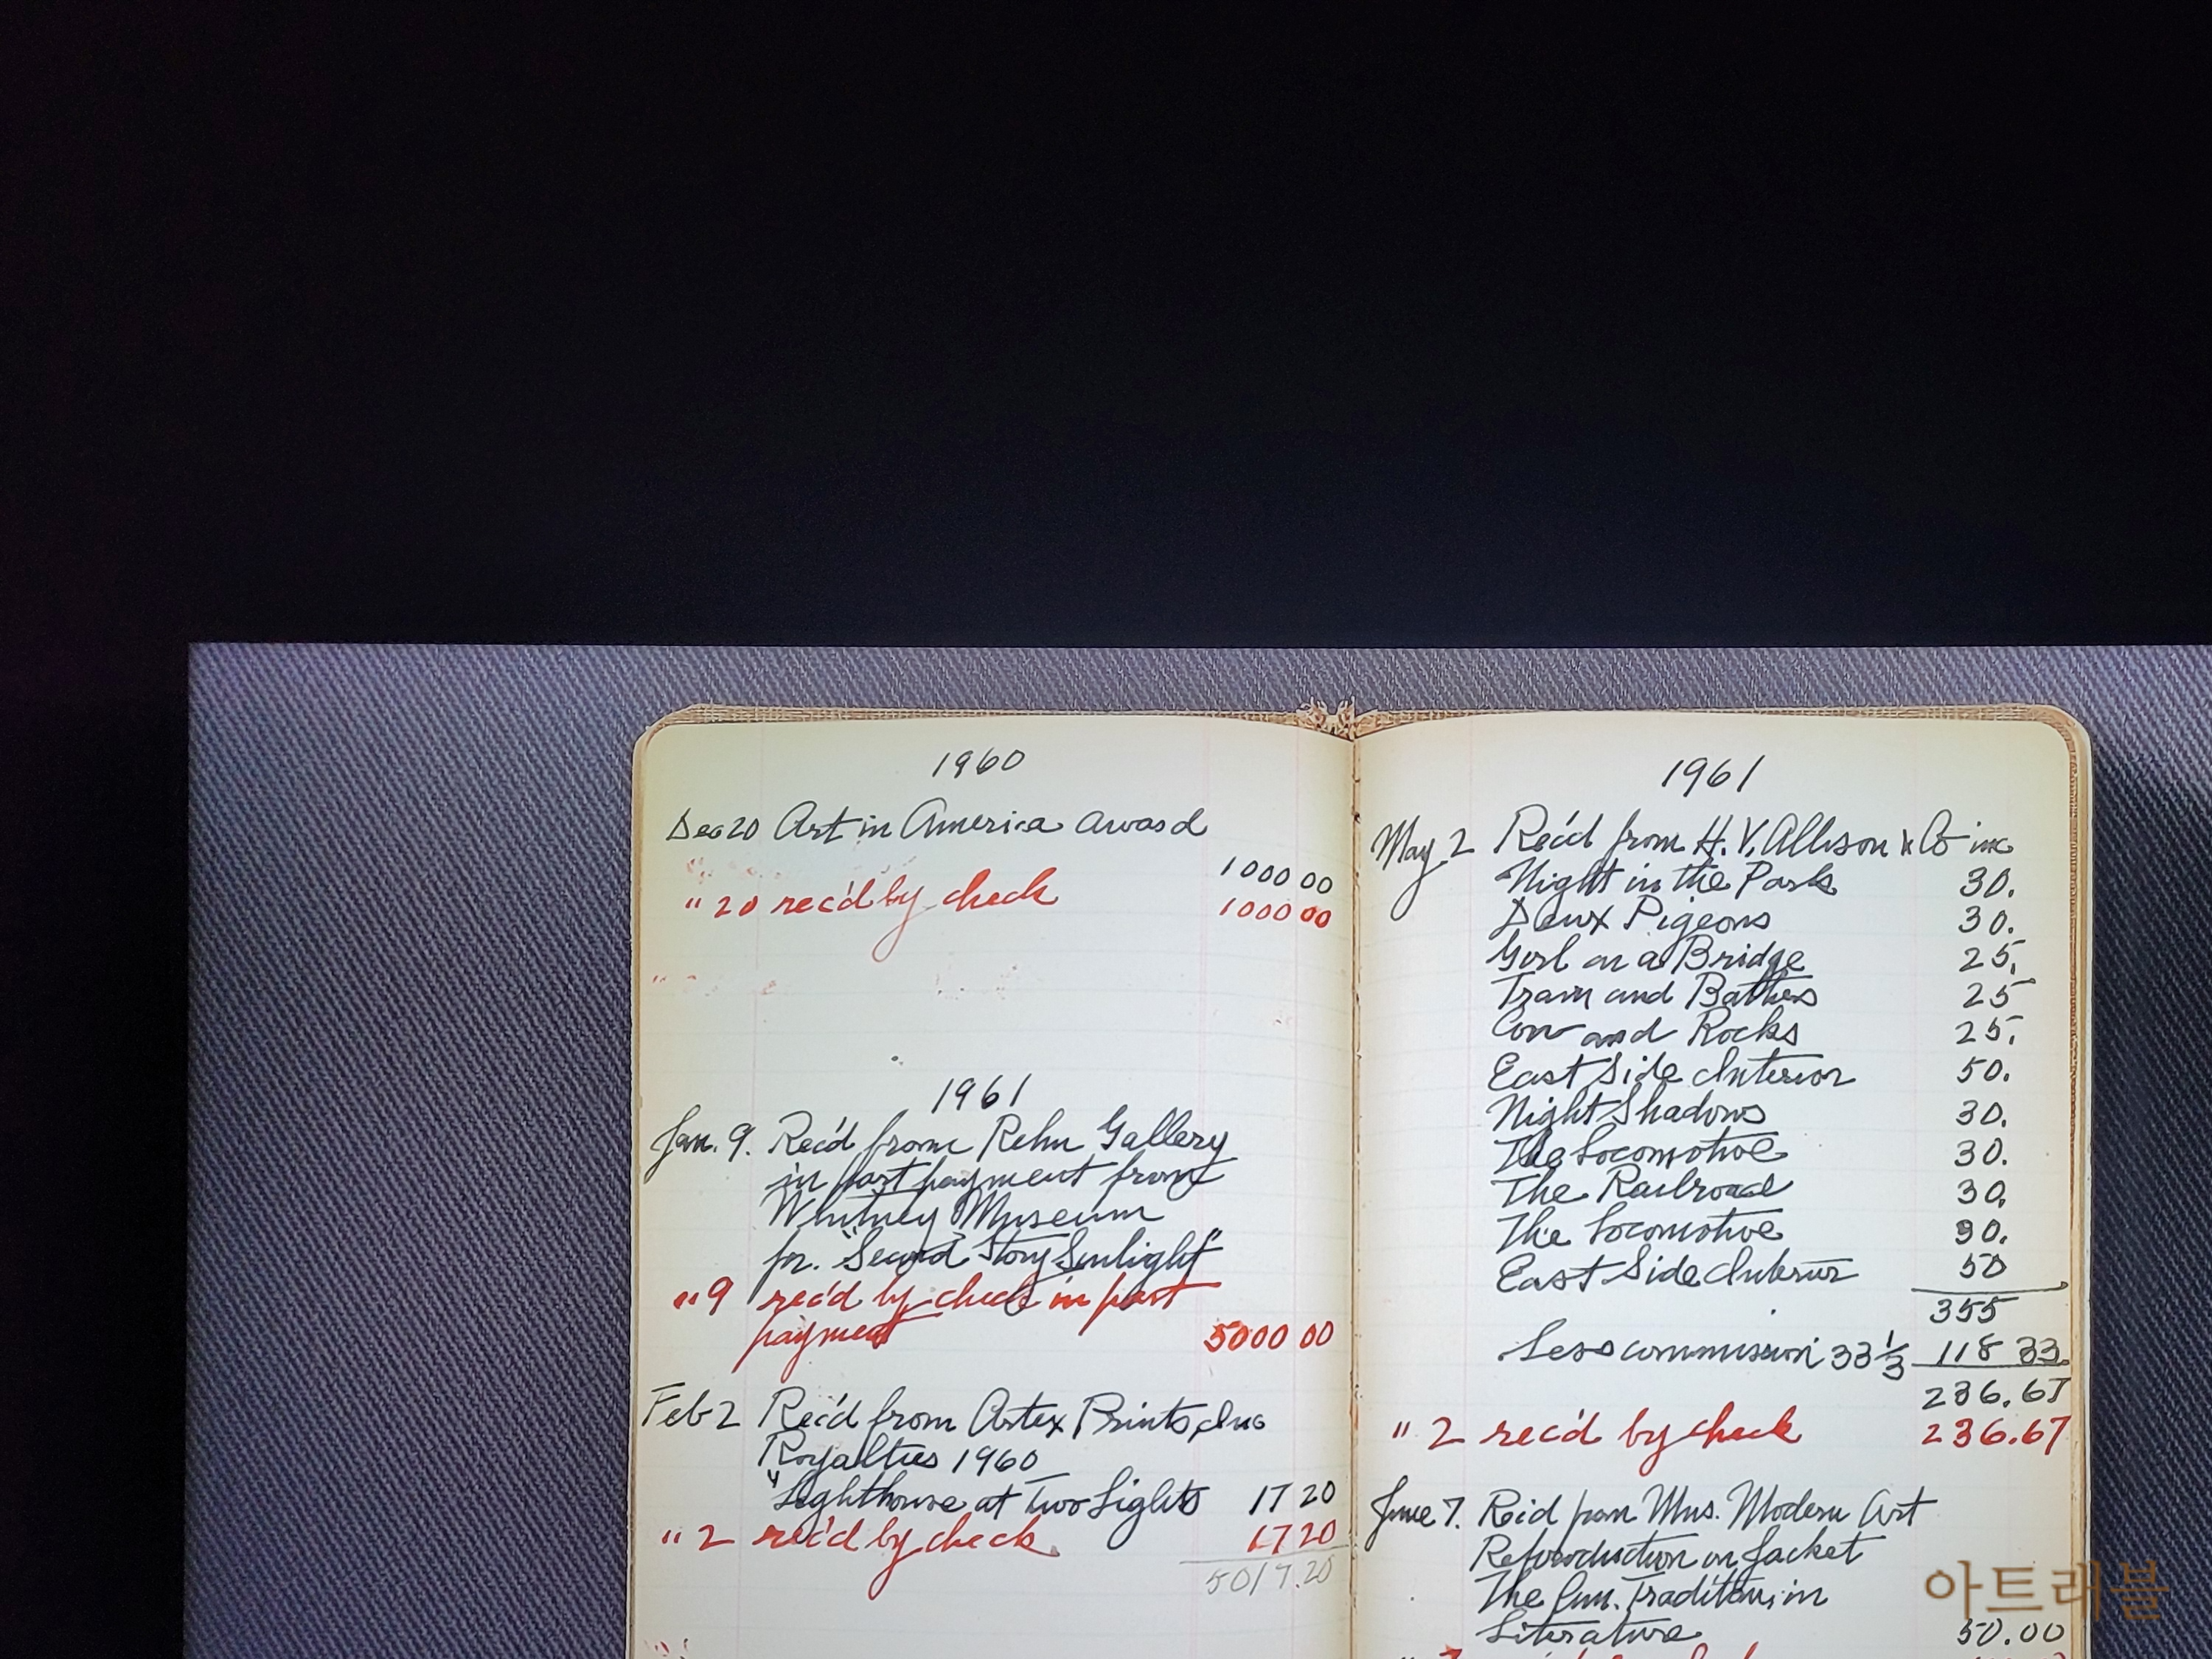 1960
Dec 20 Art in America award
1000 00
" 20 rec'd by check 1000 00
1961
Jan. 9. Rec'd from Rehn Gallery
in part payment from
Whitney Museum
for "Second Story Sunlight"
" 9 rec'd by check in part
payment 5000 00
Feb 2 Rec'd from Artex Prints, Inc
Royalties 1960
"Lighthouse at Two Lights 17 20
" 2 rec'd by check 17 20
5017.20
1961
May 2 Rec'd from H. V. Allison & Co inc
Night in the Park 30.
Deux Pigeons 30.
Girl on a Bridge 25.
Train and Bathers 25
Cow and Rocks 25.
East Side Interior 50.
Night Shadows 30.
The Locomotive 30.
The Railroad 30.
The Locomotive 30.
East Side Interior 50
355
Less commission 33 1/3 118 33
236.67
" 2 rec'd by check 236.67
June 7. Rec'd from Mus. Modern Art
Reproduction on Jacket
The Tradition in
Literature 50.00
아트래블